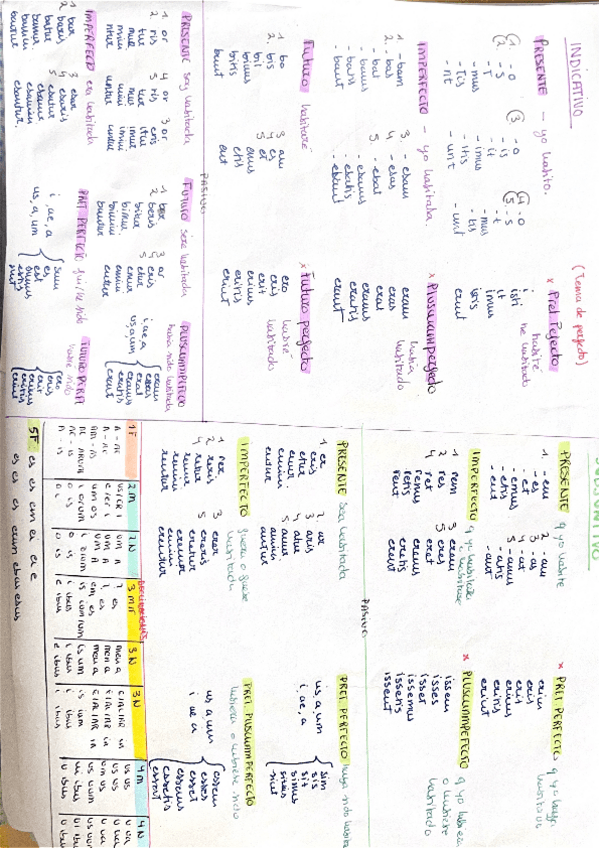 INDICATIVO
(Tema de perfecto)
PRESENTE - yo habito.
1. - o
2. - s
- T
- mus
- tis
- nt
3 - o
- is
- it
- imus
- itis
- unt
4 - o
5. - s
- t
- mus
- tis
- unt
x Pret. Perfecto
habité
he habitado
i
isti
it
imus
istis
erunt
IMPERFECTO - yo habitaba.
1. - bam
2. - bas
- bat
- bamus
- batis
- bant
3. - ebam
4 - ebas
5. - ebat
- ebamus
- ebatis
- ebant
x Pluscuamperfecto
había
habitado
eram
eras
erat
eramus
eratis
erant
Futuro habitaré
1. bo
2. bis
bit
bimus
bitis
bunt
3 am
4 es
5 et
emus
etis
ent
x Futuro perfecto
habré
habitado
ero
eris
erit
erimus
eritis
erint
PASIVO
PRESENTE soy habitada
1 or
2 ris
tur
mur
mini
ntur
4 or
5 ris
tur
mur
mini
untur
3 or
eris
itur
imur
imini
untur
FUTURO seré habitada
1 bor
2 beris
bitur
bimur
bimini
buntur
3 ar
4 eris
5 etur
emur
emini
entur
PLUSCUAMPERFECTO
había sido habitada
i, ae, a
us, a, um
eram
eras
erat
eramus
eratis
erant
IMPERFECTO era habitada
1 bar
2 baris
batur
bamur
bamini
bantur
3 ebar
4 ebaris
5 ebatur
ebamur
ebamini
ebantur.
PRET. PERFECTO fui/he sido
i, ae, a
us, a, um
sum
es
est
sumus
estis
sunt
FUTURO PERF.
habré sido
ero
eris
erit
erimus
eritis
erint
SUBJUNTIVO
PRESENTE q yo habite
1. - em
- es
- et
- emus
- etis
- ent
2 - am
3 - as
4 - at
5 - amus
- atis
- ant
x PRET. PERFECTO q yo haya
habitado
erim
eris
erit
erimus
eritis
erint
IMPERFECTO q yo habitara
o habitase
1 rem
2 res
4 ret
remus
retis
rent
3 erem
5 eres
eret
eremus
eretis
erent
x PLUSCUAMPERFECTO q yo hubiera
o hubiese
habitado
issem
isses
isset
issemus
issetis
issent
PASIVO
PRESENTE sea habitada
1 er
eris
etur
emur
emini
entur
2 ar
3 aris
4 atur
5 amur
amini
antur
PRET. PERFECTO haya sido habitada
us, a, um
i, ae, a
sim
sis
sit
simus
sitis
sint
IMPERFECTO fuera o fuese
habitada
1 rer
2 reris
4 retur
remur
remini
rentur
3 erer
5 ereris
eretur
eremur
eremini
erentur
PRET. PLUSCUAMPERFECTO
hubiera o hubiese sido
us, a, um
i ae a
essem
esses
esset
essemus
essetis
essent
DECLINACIONES
1F
2 M
2 N
3 M F
3 N
3N
4 M
4 N
5F: es es em ei ei e
es es es erum ebus ebus